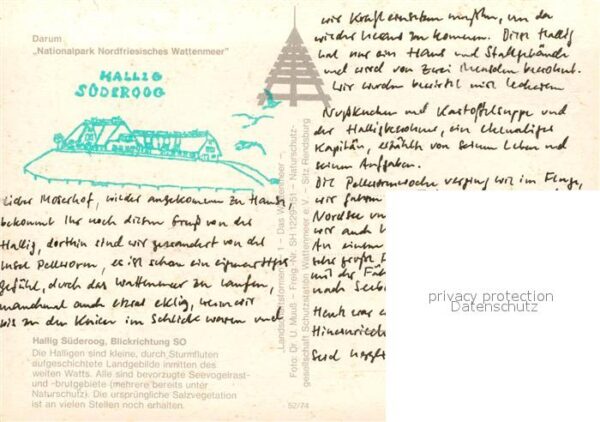 Darum
„Nationalpark Nordfriesisches Wattenmeer"
HALLIG
SÜDEROOG
Lieber Moserhof, wieder angekommen zu Hause,
bekommt Ihr noch diesen Gruß von der
Hallig, dorthin sind wir gewandert von der
Insel Pellworm, es ist schon ein eigenartiges
Gefühl, durch das Wattenmeer zu laufen,
manchmal auch etwas eklig, wenn wir
bis zu den Knien im Schlick waren und
wir Kraft einsetzen mußten, um da
wieder heraus zu kommen. Diese Hallig
hat nur ein Haus und Stallgebäude
und wird von zwei Menschen bewohnt.
Wir wurden bewirtet mit leckerem
Nußkuchen und Kartoffelsuppe und
der Halligbewohner, ein ehemaliger
Kapitän, erzählt von seinem Leben und
seinen Aufgaben.
Die Pellwormwoche verging wie im Fluge,
wir fuhren
Nordsee
wir auch
An einem
sehr große
mit der Fäh
nach
Heute war
Seid
Hallig Süderoog, Blickrichtung SO
Die Halligen sind kleine, durch Sturmfluten
aufgeschichtete Landgebilde inmitten des
weiten Watts. Alle sind bevorzugte Seevogelrast-
und -brutgebiete (mehrere bereits unter
Naturschutz). Die ursprüngliche Salzvegetation
ist an vielen Stellen noch erhalten.
52/74
Foto: Dr. U. Muuß – Freig. Nr. SH – Naturschutz-
gesellschaft Schutzstation Wattenmeer e.V. – Sitz Rendsburg
privacy protection
Datenschutz